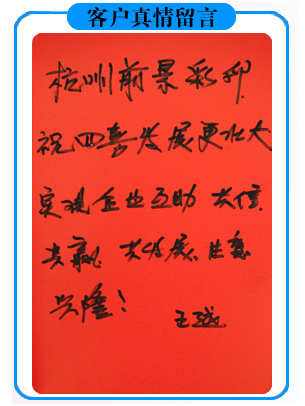 客户真情留言
杭州前景彩印
祝四喜发展更壮大
实现企业互助 共信
共赢 共发展、生意
兴隆！
王斌